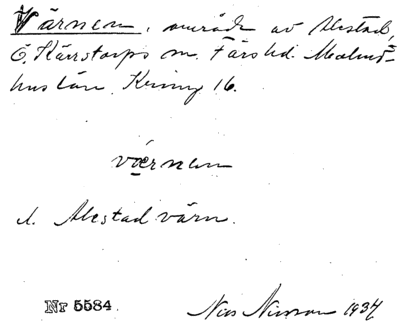 Värnen, område av Alestad,
Ö. Kärrstorps sn. Färs hd. Malmö-
hus län. Kring 16.
värnen
el. Alestad värn.
Nr 5584
Nils Nilsson 1934